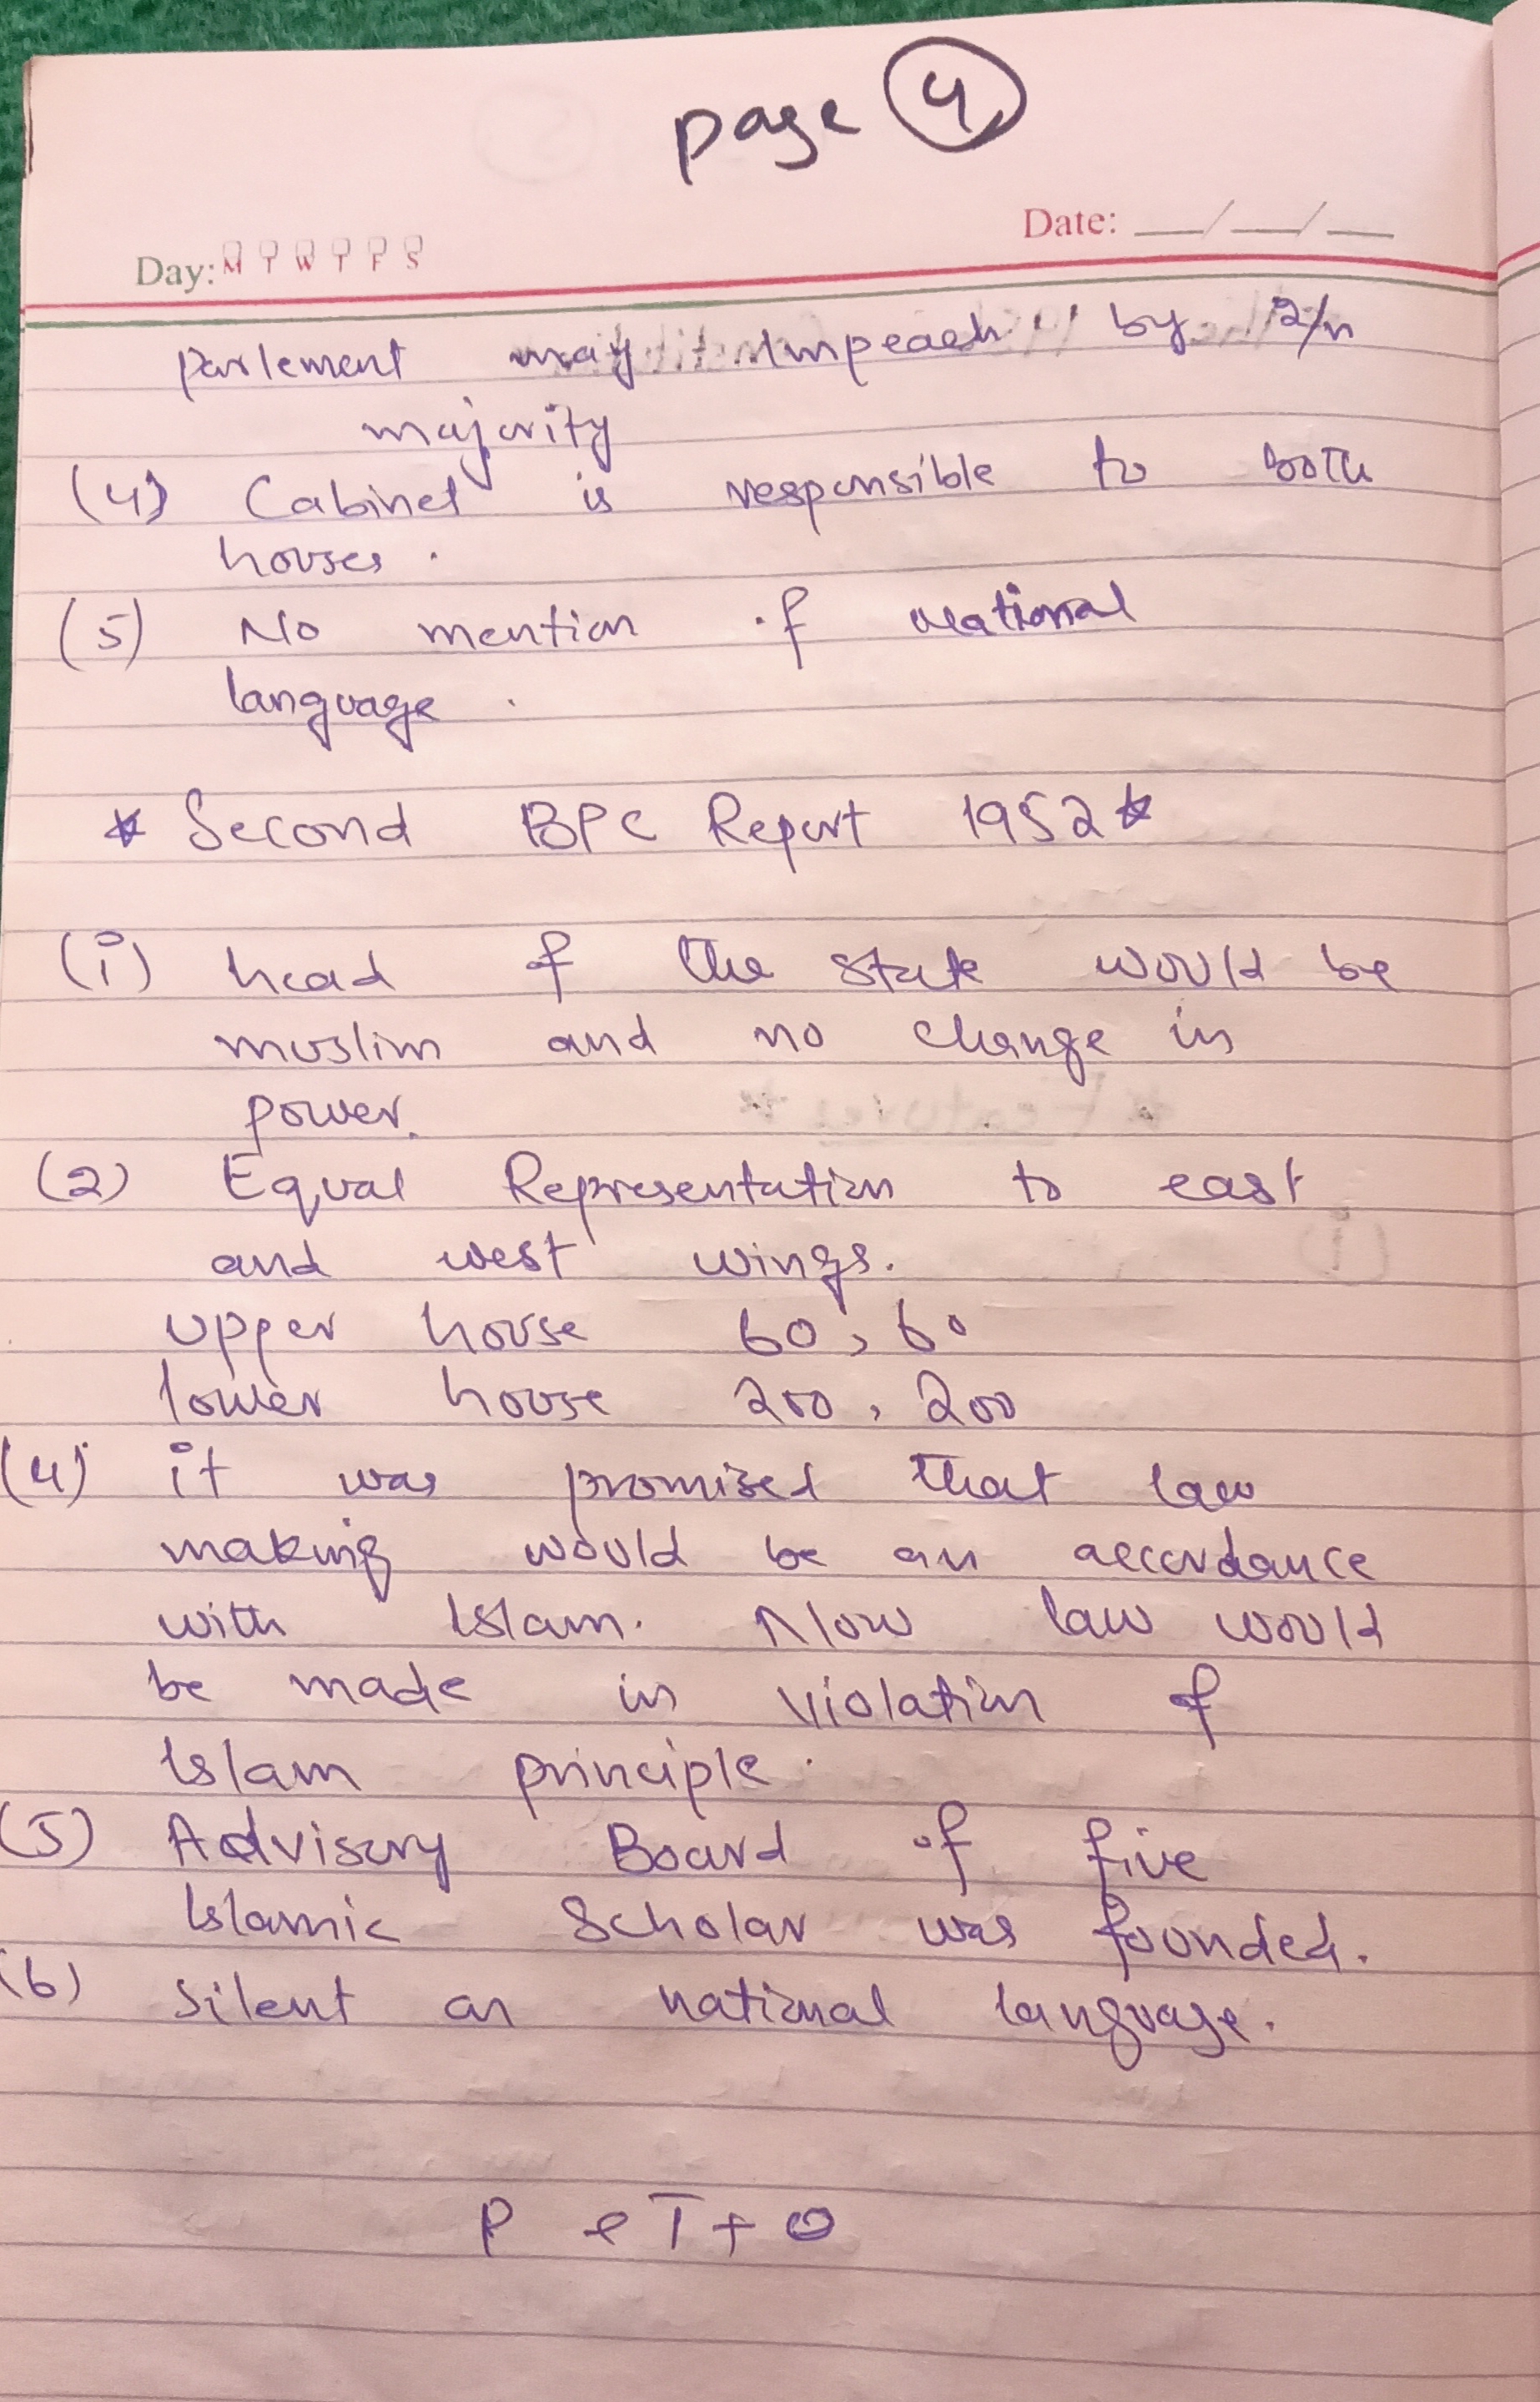 page 4
Date: __/__/__
Day: M T W T F S
Parlement may Impeach by 2/n
majority
(4) Cabinet is responsible to both
houses.
(5) No mention of national
language.
* Second BPC Report 1952 *
(i) head of the state would be
muslim and no change in
power.
(2) Equal Representation to east
and west wings.
upper house 60, 60
lower house 200, 200
(4) it was promised that law
making would be an accordance
with Islam. Now law would
be made in violation of
Islam principle.
(5) Advisory Board of five
Islamic Scholar was founded.
(6) Silent on national language.
P e T + O